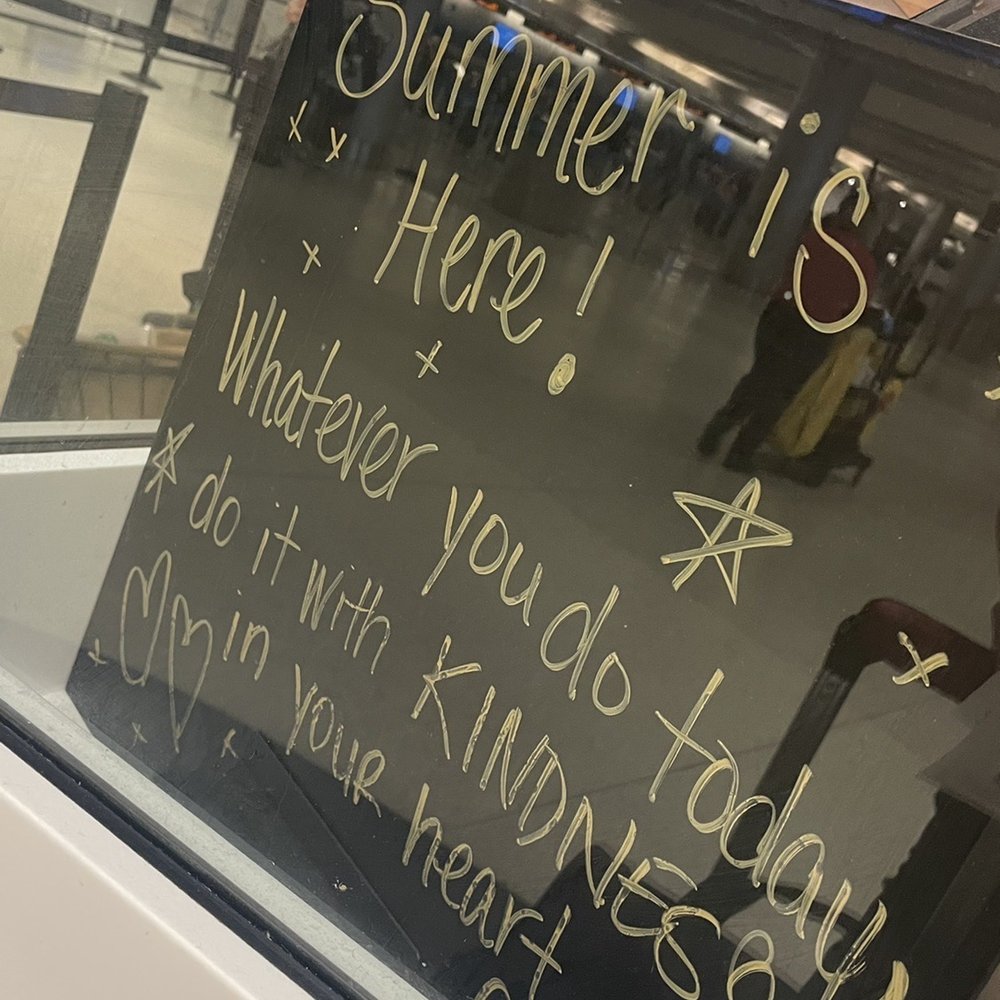 Summer is
Here!
Whatever you do today,
do it with KINDNESS
in your heart